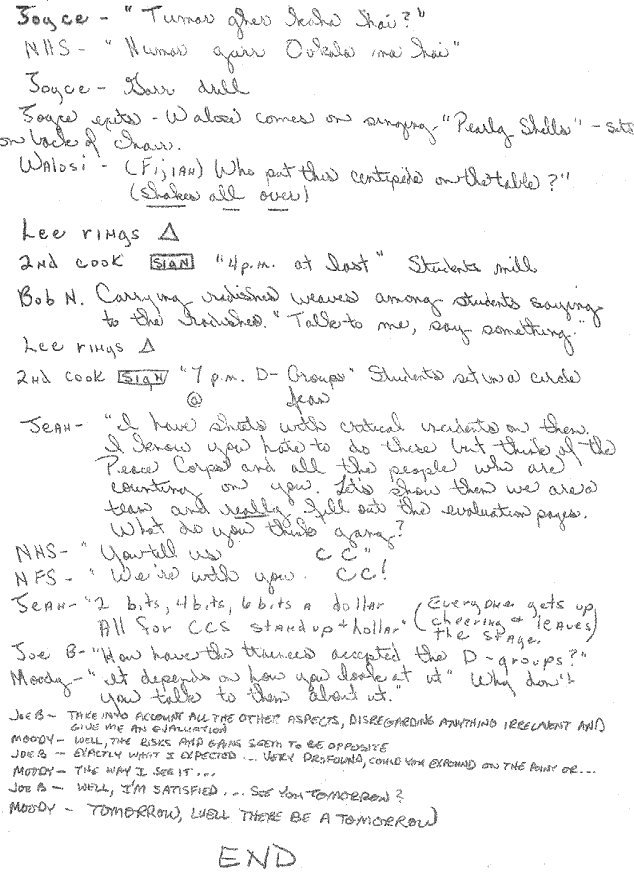 Joyce - "Tumar gher kaha hai?"
NHS - "Humar garr Ookala me hai"
Joyce - Garr drill
Joyce exits - Walosi comes on singing "Pearly Shells" - sits
on back of chair.
Walosi - (Fijian) Who put this centipede on the table?"
(shakes all over)
Lee rings △
2nd cook SIGN "4 p.m. at last" Students mill
Bob N. Carrying radishes weaves among students saying
to the radishes. "Talk to me, say something."
Lee rings △
2nd cook SIGN "7 p.m. D-Groups" Students sit in a circle
@ Jean
Jean - "I have sheets with critical incidents on them.
I know you hate to do these but think of the
Peace Corps and all the people who are
counting on you. Let's show them we are a
team and really fill out the evaluation pages.
What do you think gang?
NHS - "You tell us CC"
NFS - "We're with you CC!
Jean - "2 bits, 4 bits, 6 bits a dollar (Everyone gets up,
All for CCS stand up + hollar" cheering + leaves
the stage.)
Joe B - "How have the trainees accepted the D-groups?"
Moody - "It depends on how you look at it" Why don't
you talk to them about it."
Joe B - TAKE INTO ACCOUNT ALL THE OTHER ASPECTS, DISREGARDING ANYTHING IRRELAVENT AND
GIVE ME AN EVALUATION
MOODY - WELL, THE RISKS AND GAINS SEEM TO BE OPPOSITE
JOE B - EXACTLY WHAT I EXPECTED ... VERY PROFOUND, COULD YOU EXPOUND ON THE POINT OR ...
MOODY - THE WAY I SEE IT ...
JOE B - WELL, I'M SATISFIED ... SEE YOU TOMORROW?
MOODY - TOMORROW, WELL THERE BE A TOMORROW)
END